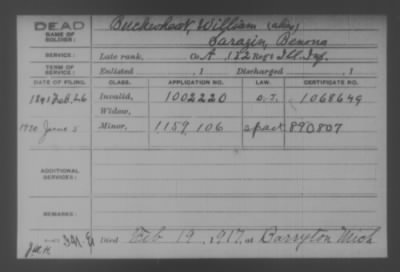 DEAD Buckeshoot, William (alias)
NAME OF SOLDIER: Barazin, Benona
SERVICE: Late rank, Co. A 152 Reg't Ill. Inf.
TERM OF SERVICE: Enlisted , 1 Discharged , 1
DATE OF FILING. CLASS. APPLICATION NO. LAW. CERTIFICATE NO.
1891 Feb. 26 Invalid, 1002220 O.J. 1068649
Widow,
1920 June 5 Minor, 1159,106 890807
ADDITIONAL SERVICES:
REMARKS:
Died Feb 19, 1917, at Barryton Mich
J.M.H.